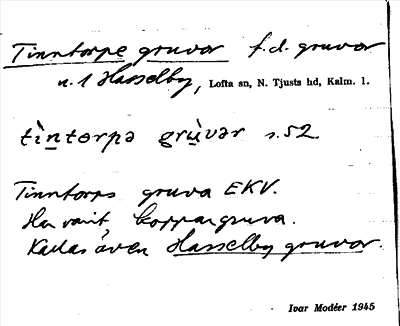 Tinntorpe gruvor f.d. gruvor
u. 1 Hasselby, Lofta sn, N. Tjusts hd, Kalm. l.
tìn̲torpə grù̲vər s.52
Tinntorps gruva EKV.
Har varit koppargruva.
Kallas även Hasselby gruvor.
Ivar Modéer 1945